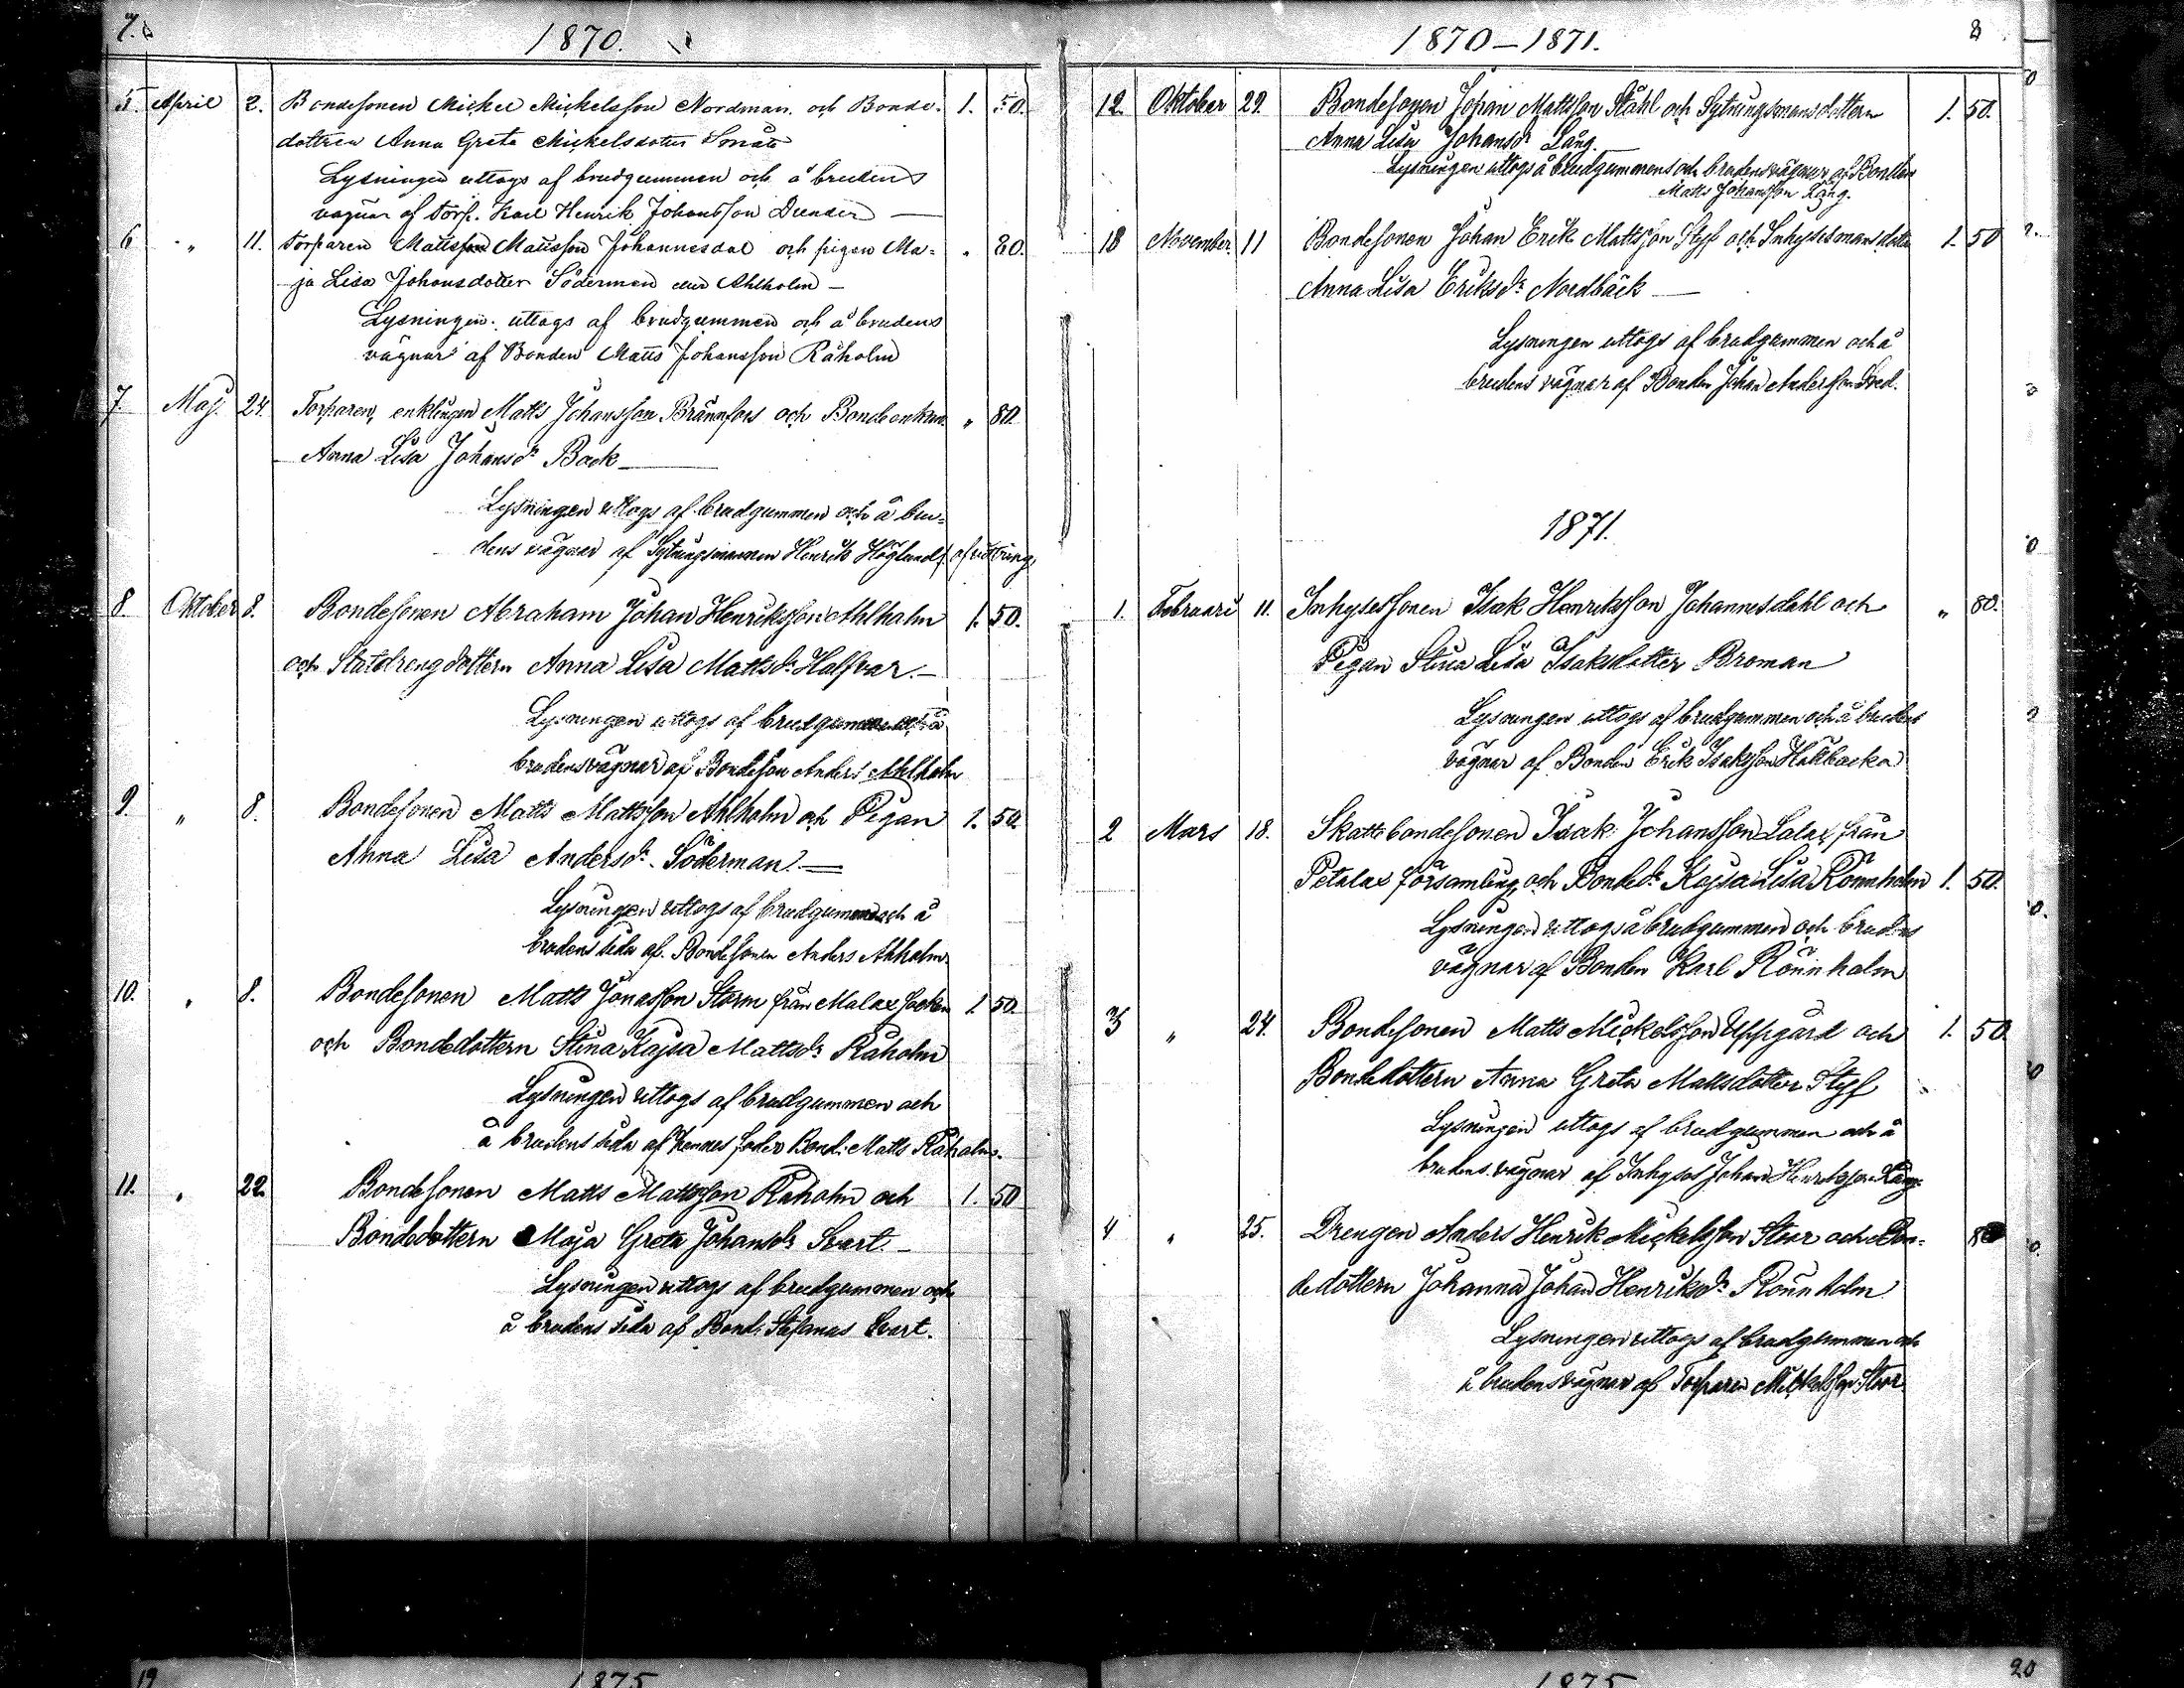 7.
1870.
5. April 2. Bondesonen Mickel Mickelsson Nordman och Bonde- 1. 50.
dottren Anna Greta Mickelsdotter
Lysningen uttogs af brudgummen och å brudens
vägnar af torp. Karl Henrik Johansson Dunder
6 " 11. Torparen Mattsson Mattsson Johannesdal och pigan Ma= " 80.
ja Lisa Johansdotter Söderman Ahlholm
Lysningen uttogs af brudgummen och å brudens
vägnar af Bonden Matts Johansson Råholm
7. Maj 24. Torparen, enklingen Matts Johansson Brännfors och Bondeenkan " 80.
Anna Lisa Johansdr Back
Lysningen uttogs af brudgummen och å bru=
dens vägnar af Sytningsmannen Henrik Höglund
8. Oktober 8. Bondesonen Abraham Johan Henriksson Ahlholm 1. 50.
och Statdrengdottern Anna Lisa Mattsdr Halfvar.
Lysningen uttogs af brudgummen och å
brudens vägnar af Bondeson Anders Ahlholm
9. " 8. Bondesonen Matts Mattsson Ahlholm och Pigan 1. 50.
Anna Lisa Andersdr Söderman
Lysningen uttogs af brudgummen och å
brudens sida af Bondesonen Anders Ahlholm.
10. " 8. Bondesonen Matts Jonasson Storm från Malax Socken 1. 50.
och Bondedottern Stina Kajsa Mattsdr Råholm
Lysningen uttogs af brudgummen och
å brudens sida af hennes fader Bond. Matts Råholm.
11. " 22. Bondesonen Matts Mattsson Råholm och 1. 50
Bondedottern Maja Greta Johansdr Svart.
Lysningen uttogs af brudgummen och
å brudens sida af Bond. Stefanus Svart.
1870–1871.
8
12. Oktober 29. Bondesonen Johan Mattsson Ståhl och Sytningsmansdottern 1. 50.
Anna Lisa Johansdr Lång.
Lysningen uttogs å brudgummens och brudens vägnar af Bonden
Matts Johansson Lång.
13 November 11 Bondesonen Johan Erik Mattsson Styf och Inhysesmansdottr 1. 50
Anna Lisa Eriksdr Nordbäck
Lysningen uttogs af brudgummen och å
brudens vägnar af Bonden Johan Andersson
1871.
1. Februari 11. Inhysessonen Isak Henriksson Johannesdahl och " 80.
Pigan Stina Lisa Isaksdotter Broman
Lysningen uttogs af brudgummen och å brudens
vägnar af Bonden Erik Isaksson Håkbacka
2 Mars 18. Skattebondesonen Isak Johansson Lalax från
Petalax församling och Bondedr Kajsa Lisa Rönnholm 1. 50.
Lysningen uttogs å brudgummen och brudens
vägnar af Bonden Karl Rönnholm
3 " 24. Bondesonen Matts Mickelsson Uppgård och 1. 50.
Bondedottern Anna Greta Mattsdotter Styf
Lysningen uttogs af brudgummen och å
brudens vägnar af Inhyses Johan Henriksson Lång
4 " 25. Drengen Anders Henrik Mickelsson Stoor och Bon=
dedottern Johanna Johan Henriksdr Rönnholm
Lysningen uttogs af brudgummen och
å brudens vägnar af Torparen Mickelsson Stoor
19
1875
1875
20